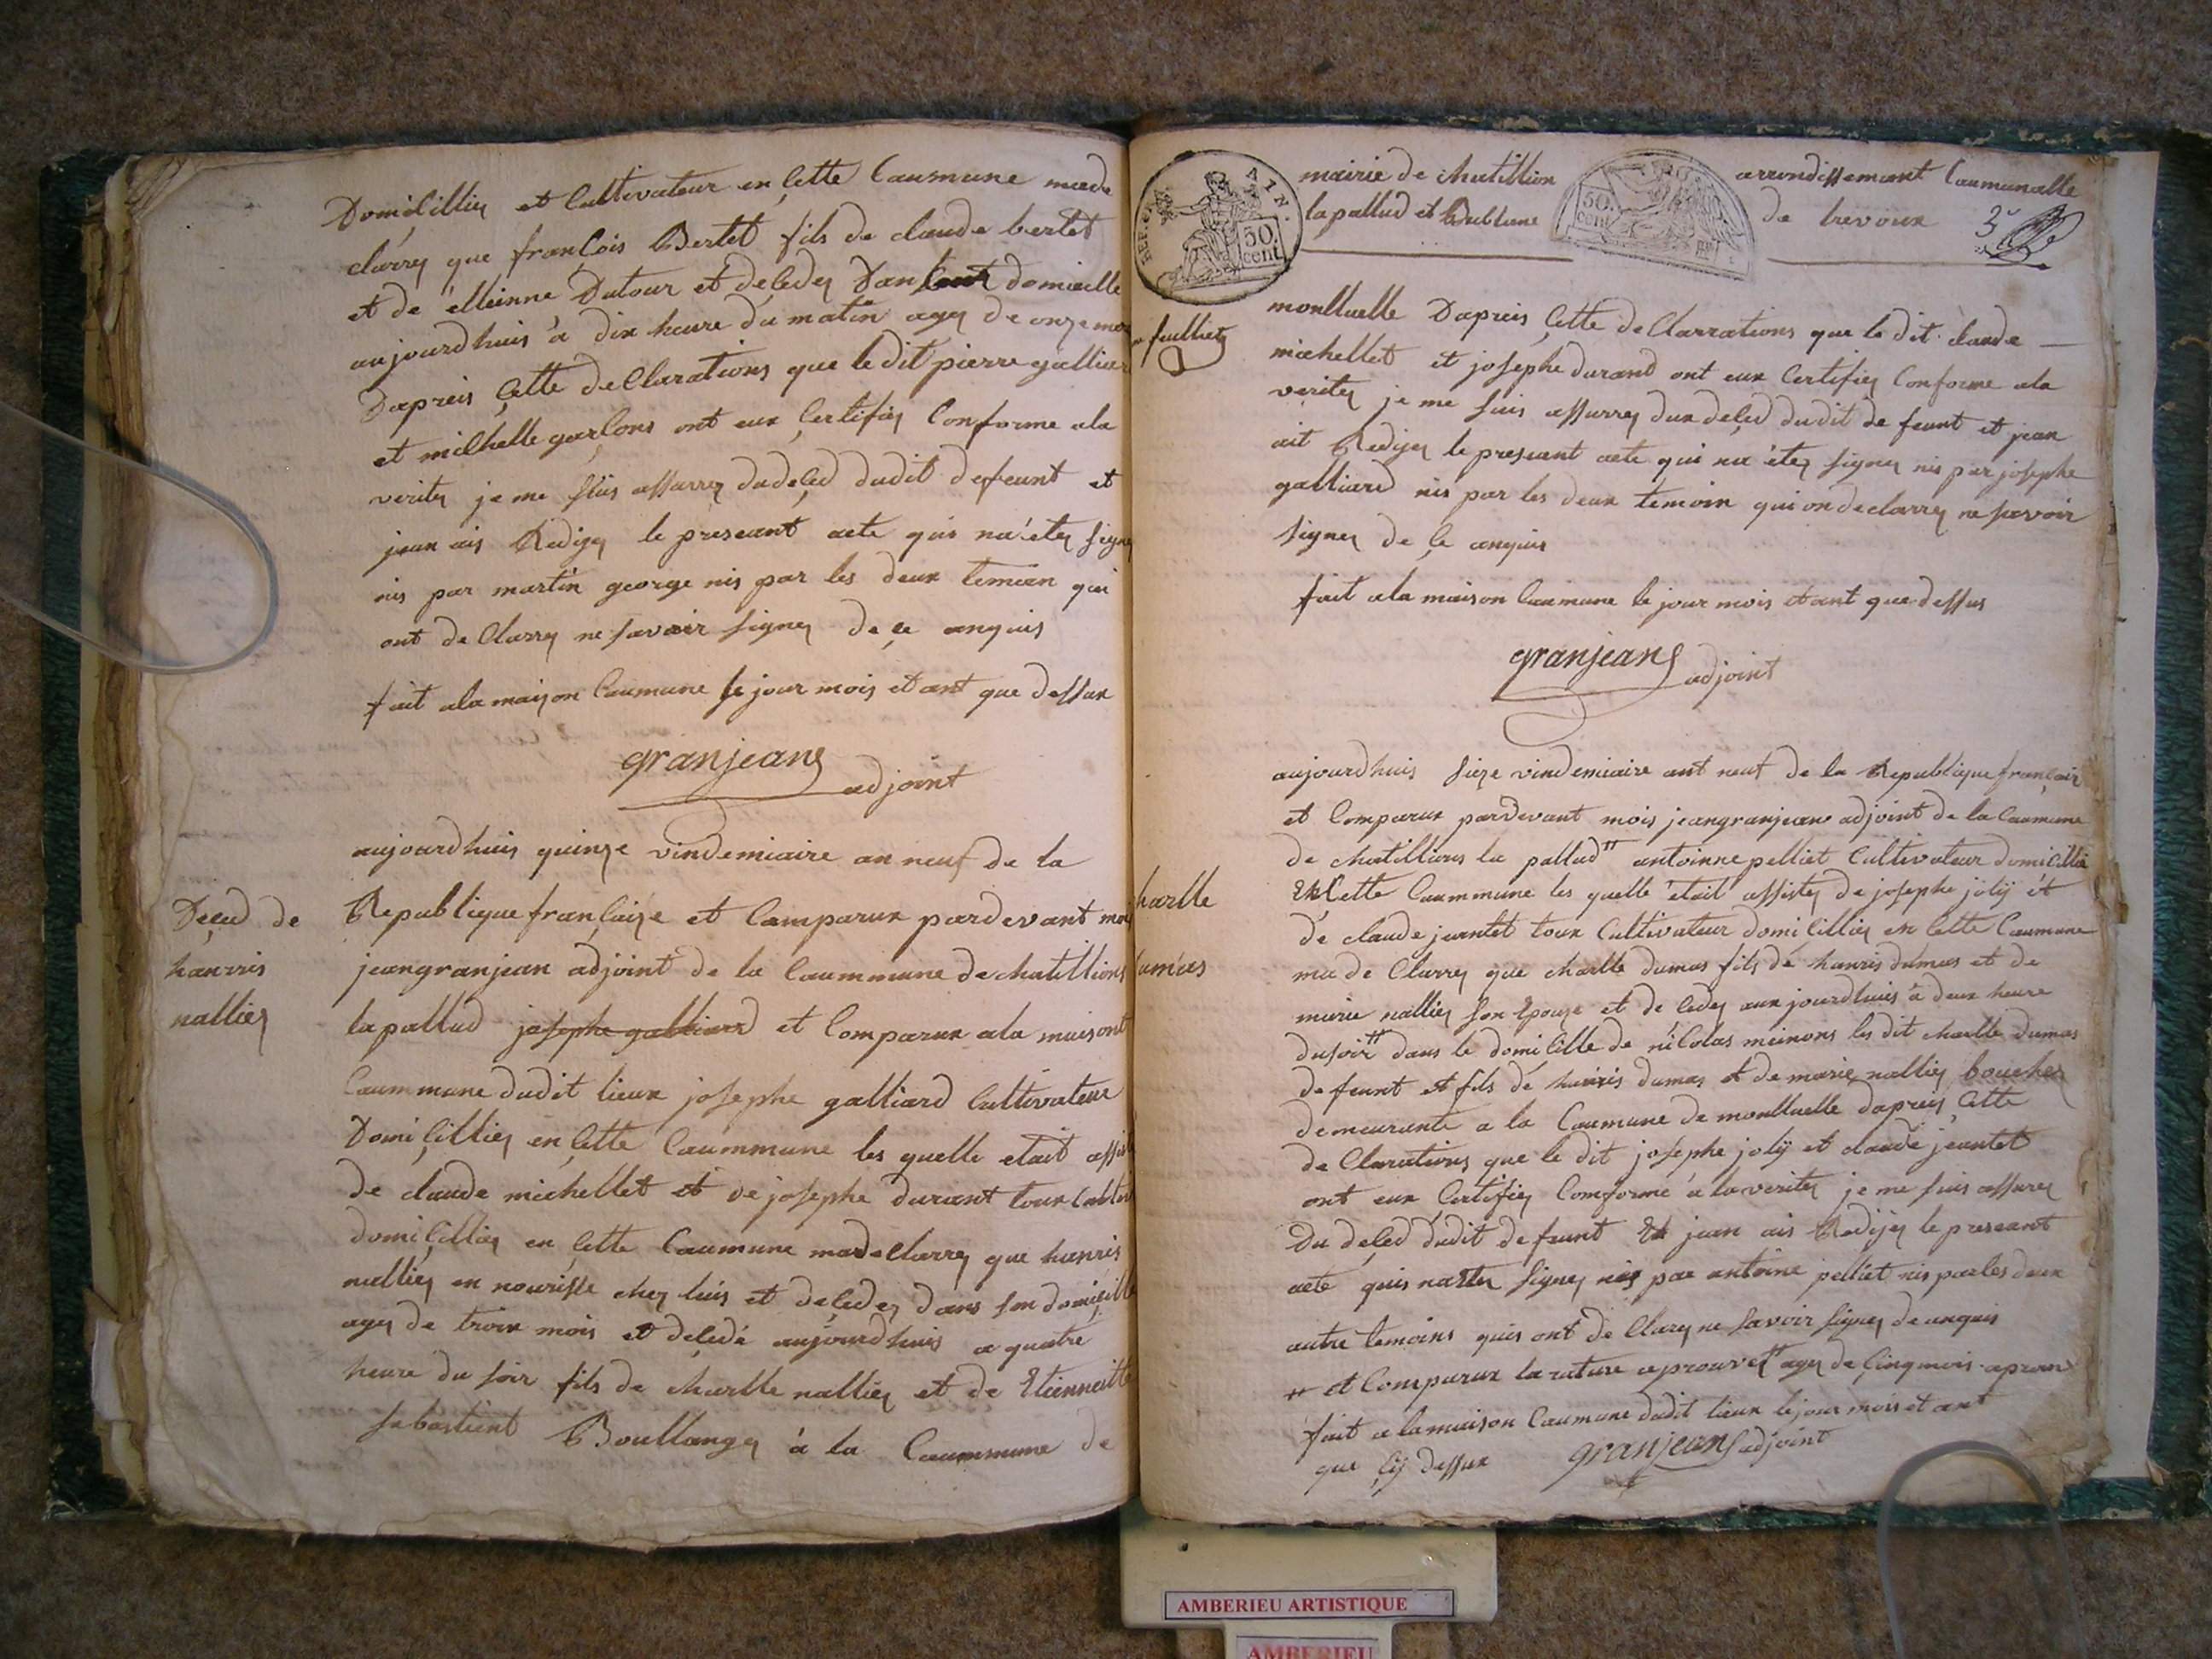 Domicillier et Cultivateur en Cette Caumune made
clarrey que françois Bertet fils de claude bertet
et de élleinne Dutour et deçeder Dans domicille
aujourdhuis à dix heure du matin ager de onze
Dapreis Çette deClarations que le dit pierre galliar
et michelle garlons ont eux Çertifiér Conforme ala
veriter je me suis assurrer dudeçed dudit defeunt et
jean ais Rediger le preseant acte quis na'éter signer
nis par martin george nis par les deux temoin qui
ont deClarrey ne savoir signer de ce anquis
fait ala maison Caumune le jour mois et ant que dessux
granjeans
adjoint
aujourdhuis quinze vindemiaire an neuf de la
Republique françaize et Comparux pardevant moi
Deçed de
hanris
nallier
jeangranjean adjoint de la Caummune de chatillions
la pallud josephe galliard et Comparux ala maisont
Caummune dudit lieux josephe galliard Cultivateur
Domiçillier en Çette Caummune les quelle etait assis
de claude michellet et de josephe durant toux Cult
domiçillier en Çette Caumune madeClarrey que hanris
nallier en nourisse chez luis et deçeder dans son domiçille
ager de troix mois et deçedé aujourdhuis a quatre
heure du soir fils de charlle nallier et de Etienneitte
sabastient Boullanger à la Caummune de
mairie de chatillion
lapallud et
arrondissemant Caumunalle
de trevoux 3
REP. FRA
AIN.
50
cent.
50.
cent.
feulliet
monlluelle Dapreis Çette deClarrations que le dit claude
michellet et josephe durand ont eux Certifier Conforme ala
veriter je me suis assurrer dux deçed dudit de feunt et jean
ait Rediger le preseant acte qui na éter signer nis par josephe
galliard nis par les deux temoin qui on declarrey ne savoir
signer de Çe anquis
fait ala maison Caumune le jour mois et ant que dessus
granjeans
adjoint
aujourdhuis sieze vindemiaire ant neuf de la Republique françaiz
et Comparux pardevant mois jeangranjeans adjoint de la Caumune
de chatillions la pallud # antoinne pelliet Cultivateur domicillié
harlle
umas
En Cette Caummune les quelle était assister de josephe joliÿ ét
de claude jeantet toux Cultivateur domiçillier en Cette Caumune
madeClarrey que charlle dumas fils de hanris dumas et de
marie nallier son Epouze et deCeder aux jourdhuis à deux heure
dusoir # dans le domiCille de niColas meinons les dit charlle dumas
defeunt et fils dé hanris dumas et de marie nallier boucher
demeurante a la Caumune de monlluelle dapreis Çette
deClarations que le dit josephe joliÿ et claude jeantet
ont eux Çertifier Comforme à la veriter je me suis assurer
Du deçed dudit defeunt Et jean ais Redijer le preseant
acte quis na éter signer nis par antoine pelliet nis par les deux
autre temoins quis ont deClarey ne savoir signer de anquis
# et Comparux la rature aprouver # ager de Çinq mois
fait a la maison Caumune dudit lieux le jour mois et ant
que çiÿ dessux granjeans adjoint
AMBERIEU ARTISTIQUE
AMBERIEU